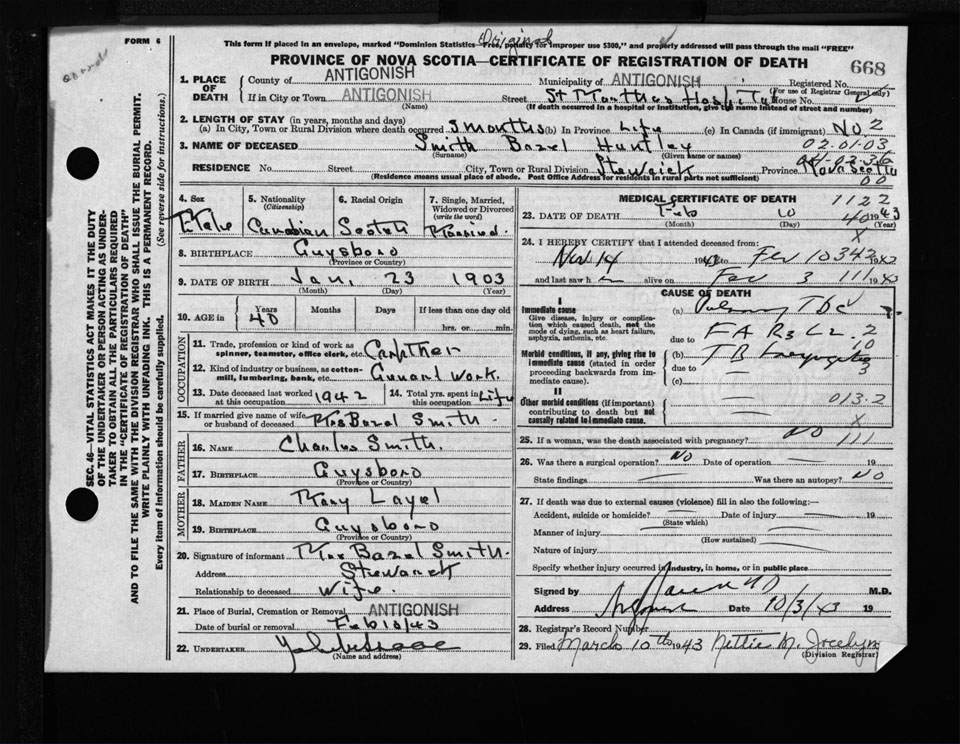 Original
FORM 6
This form if placed in an envelope, marked "Dominion Statistics—Free, penalty for improper use $300," and properly addressed will pass through the mail "FREE"
PROVINCE OF NOVA SCOTIA—CERTIFICATE OF REGISTRATION OF DEATH
668
1. PLACE OF DEATH
County of ANTIGONISH Municipality of ANTIGONISH Registered No.
(For use of Registrar General only)
If in City or Town ANTIGONISH Street St Marthas Hospital House No.
(Name) (If death occurred in a hospital or institution, give the name instead of street and number)
2. LENGTH OF STAY (in years, months and days)
(a) In City, Town or Rural Division where death occurred 3 months (b) In Province Life (c) In Canada (if immigrant) No. 2
02.01.03
3. NAME OF DECEASED Smith Bazel Huntley
(Surname) (Given name or names)
RESIDENCE No. Street City, Town or Rural Division Province Nova Scotia
(Residence means usual place of abode. Post Office Address for residents in rural parts not sufficient) 00
4. Sex Male
5. Nationality (Citizenship) Canadian
6. Racial Origin Scotch
7. Single, Married, Widowed or Divorced (write the word) Married
8. BIRTHPLACE Guysboro
(Province or Country)
9. DATE OF BIRTH Jan, 23 1903
(Month) (Day) (Year)
10. AGE in Years 40 Months Days If less than one day
hrs. or min.
OCCUPATION
11. Trade, profession or kind of work as spinner, teamster, office clerk, etc.
12. Kind of industry or business, as cotton-mill, lumbering, bank, etc. Work.
13. Date deceased last worked at this occupation 1942
14. Total yrs. spent in this occupation Life
15. If married give name of wife or husband of deceased Mrs Bazel Smith
FATHER
16. NAME Charles Smith.
17. BIRTHPLACE Guysboro
(Province or Country)
MOTHER
18. MAIDEN NAME Mary
19. BIRTHPLACE Guysboro
(Province or Country)
20. Signature of informant Mrs Bazel Smith.
Address
Relationship to deceased Wife.
21. Place of Burial, Cremation or Removal ANTIGONISH
Date of burial or removal Feb 13/43
22. UNDERTAKER
(Name and address)
MEDICAL CERTIFICATE OF DEATH 1122
23. DATE OF DEATH Feb 10 40 1943
(Month) (Day) (Year)
24. I HEREBY CERTIFY that I attended deceased from:
Nov 14 1942 to Fev 10 342
and last saw h alive on Fev 3 111 1943
CAUSE OF DEATH
I
Immediate cause
Give disease, injury or complication which caused death, not the mode of dying, such as heart failure, asphyxia, asthenia, etc.
(a) Pulmonary Tbc
due to F A R3 L2 . 2
10
Morbid conditions, if any, giving rise to immediate cause (stated in order proceeding backwards from immediate cause).
(b) TB Laryngitis 3
due to
(c)
II
Other morbid conditions (if important) contributing to death but not causally related to immediate cause.
013.2
X
25. If a woman, was the death associated with pregnancy? NO 111
26. Was there a surgical operation? NO Date of operation 19
State findings Was there an autopsy? NO
27. If death was due to external causes (violence) fill in also the following:—
Accident, suicide or homicide? Date of injury 19
(State which)
Manner of injury
(How sustained)
Nature of injury
Specify whether injury occurred in industry, in home, or in public place
Signed by M.D.
Address Date 10/3/43 19
28. Registrar's Record Number
29. Filed March 10th 1943 Nettie M. Jocelyn
(Division Registrar)
SEC. 46—VITAL STATISTICS ACT MAKES IT THE DUTY
OF THE UNDERTAKER OR PERSON ACTING AS UNDER-
TAKER TO OBTAIN ALL THE PARTICULARS REQUIRED
IN THE "CERTIFICATE OF REGISTRATION OF DEATH"
AND TO FILE THE SAME WITH THE DIVISION REGISTRAR WHO SHALL ISSUE THE BURIAL PERMIT.
WRITE PLAINLY WITH UNFADING INK. THIS IS A PERMANENT RECORD.
Every item of information should be carefully supplied. (See reverse side for instructions.)